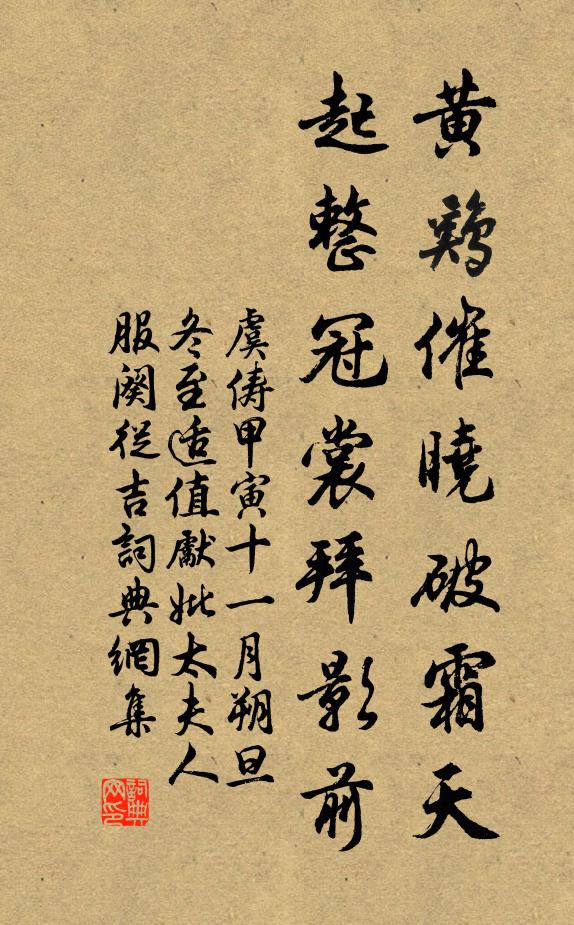 黄鷄催曉破霜天
起整冠裳拜影前
虞儔甲寅十一月朔旦
冬至适值獻妣太夫人
服闋從吉詞典網集
詞典网印